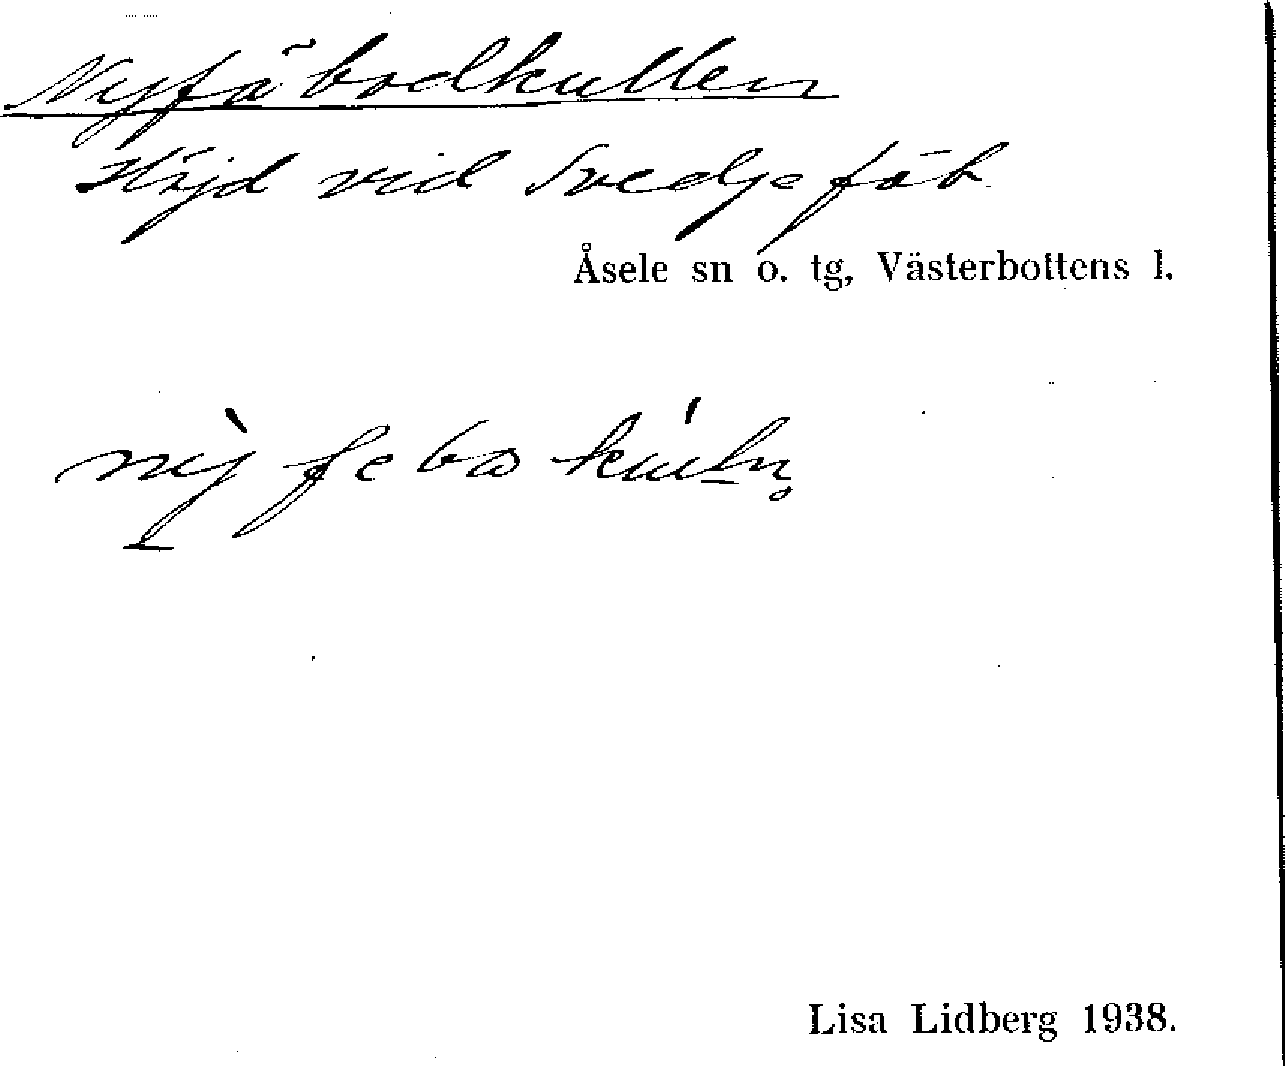 Nyfäbodkullen
Höjd vid Svedjefäb.
Åsele sn o. tg, Västerbottens l.
Lisa Lidberg 1938.